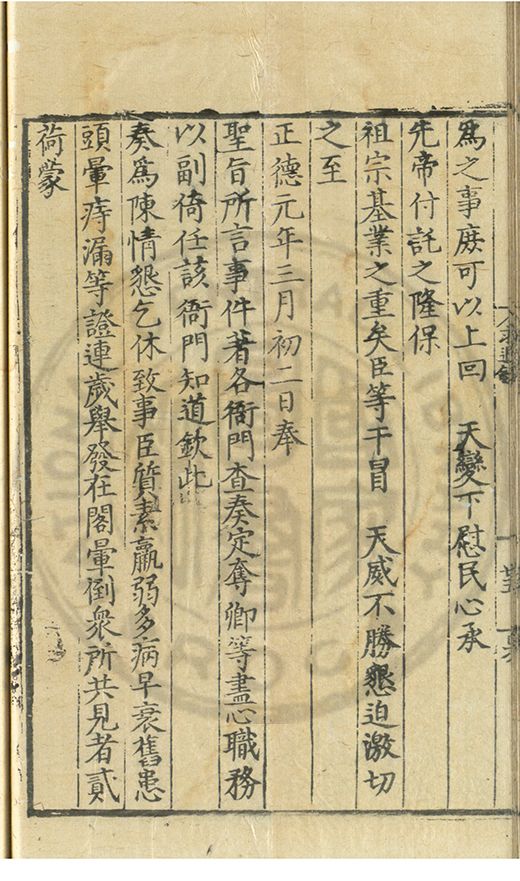 爲之事庶可以上回　天變下慰民心承
先帝付託之隆保
祖宗基業之重矣臣等干冒　天威不勝懇迫激切
之至
正德元年三月初二日奉
聖旨所言事件著各衙門查奏定奪卿等盡心職務
以副倚任該衙門知道欽此
奏爲陳情懇乞休致事臣質素羸弱多病早衰舊患
頭暈痔漏等證連歲舉發在閣暈倒衆所共見者貳
荷蒙